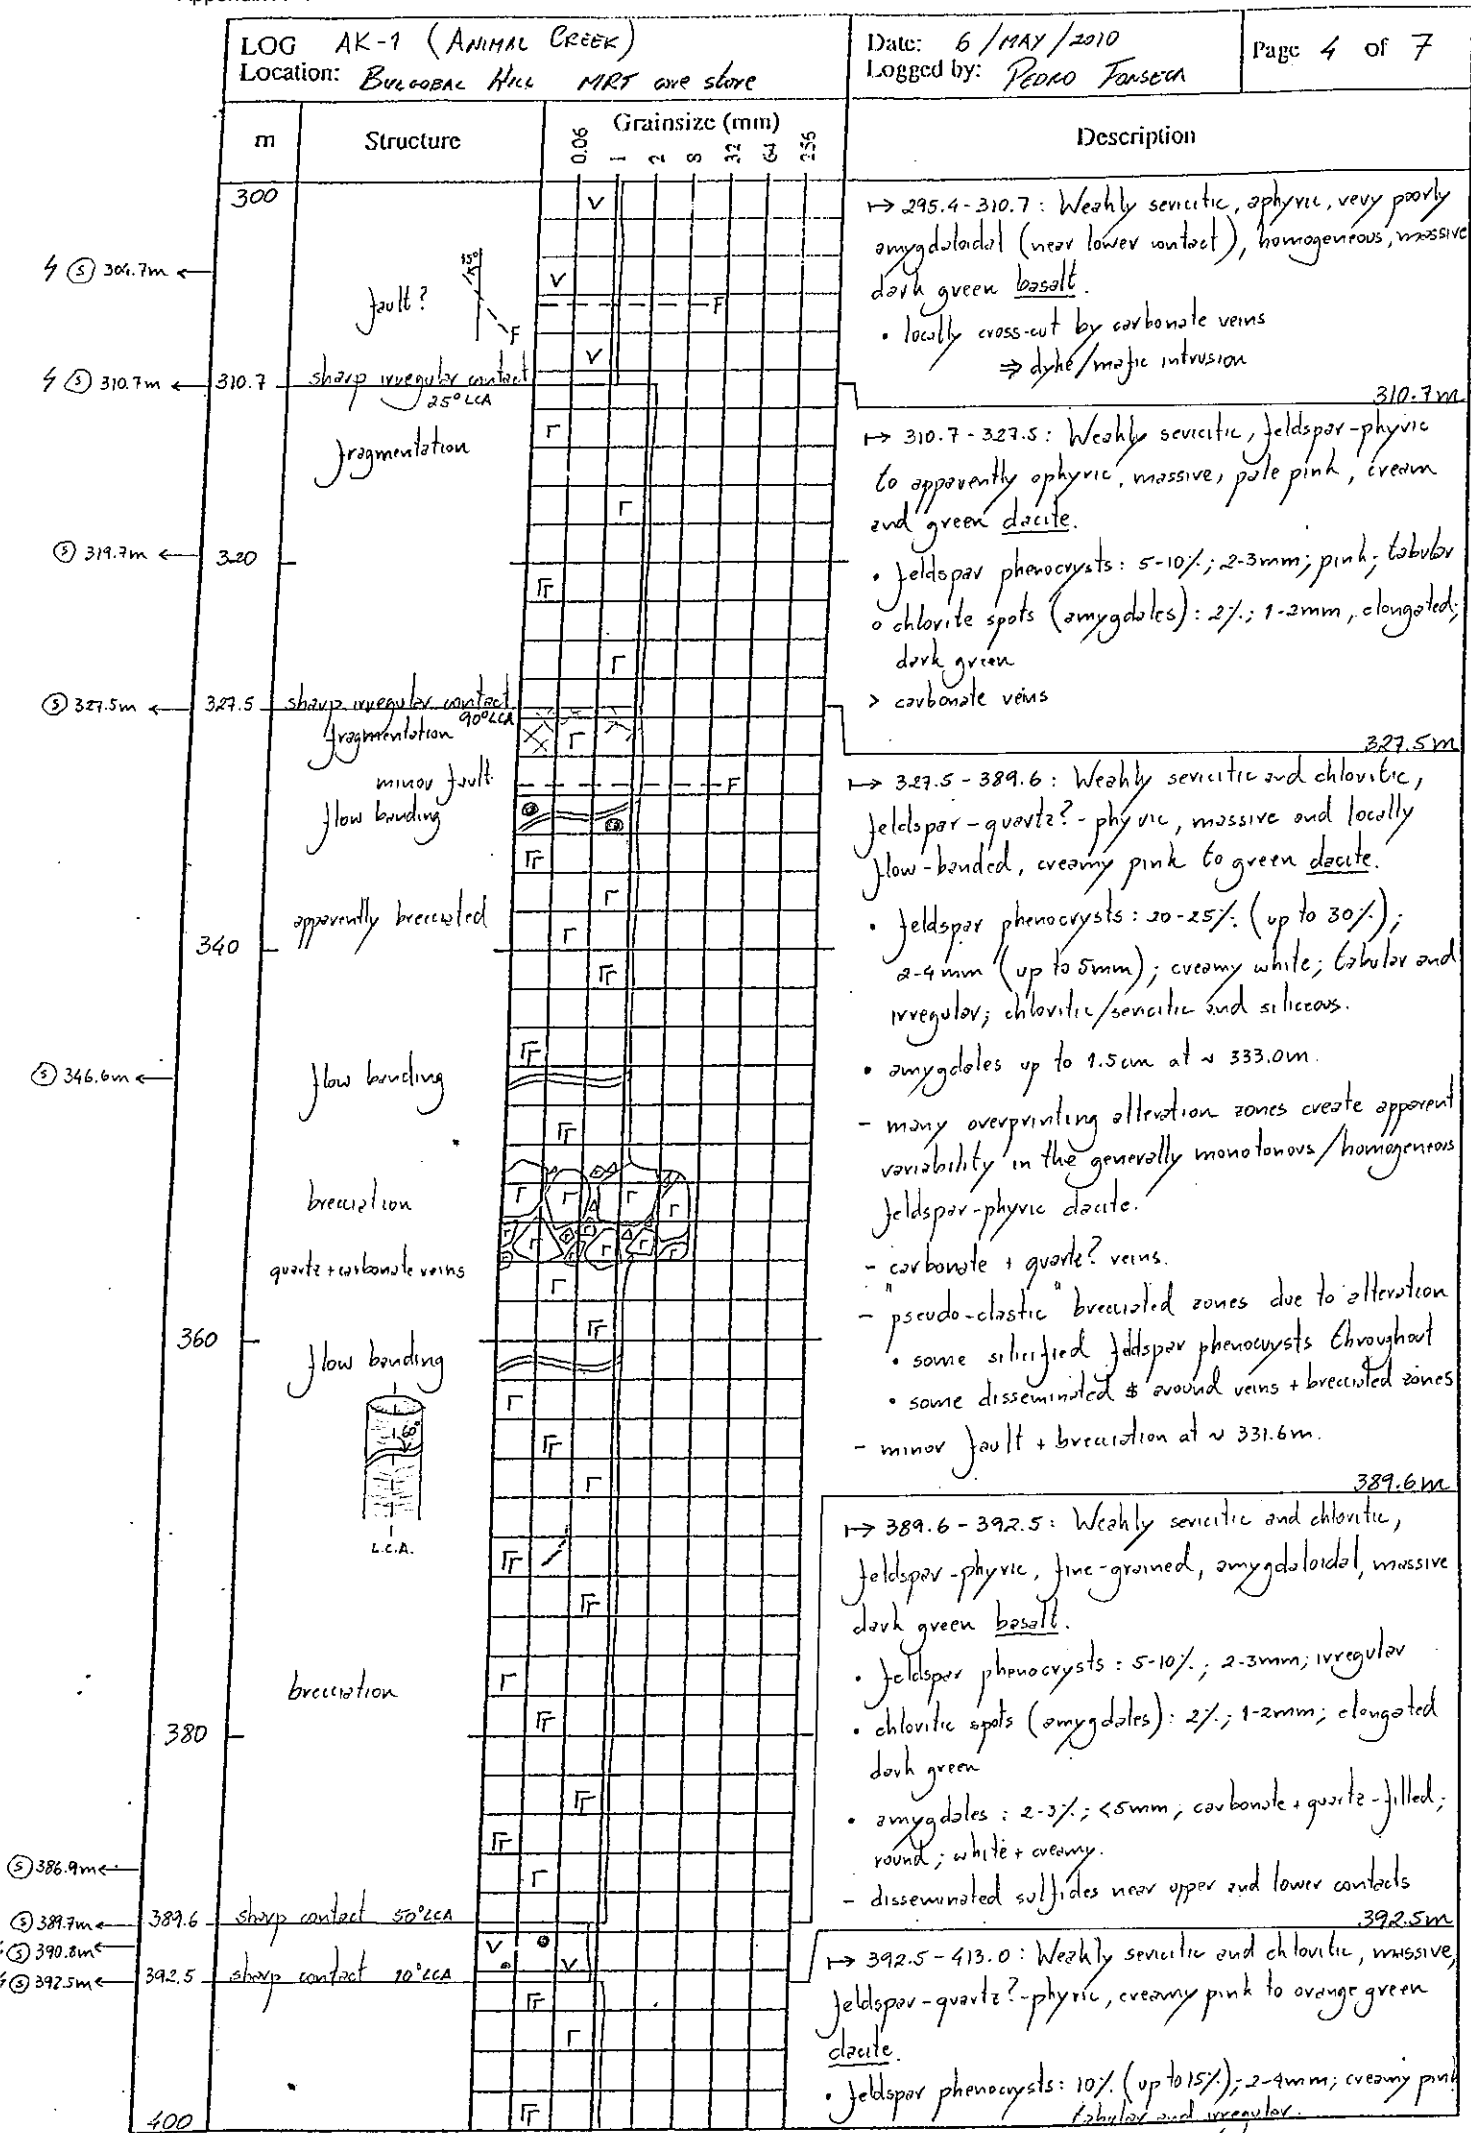 LOG AK-1 (ANIMAL CREEK)
Location: BULGOBAC HILL MRT core store
Date: 6/MAY/2010
Logged by: PEDRO FONSECA
Page 4 of 7
m
Structure
Grainsize (mm)
0.06
1
2
8
32
64
256
Description
300
310.7
320
327.5
340
360
380
389.6
392.5
400
(S) 310.7m
(S) 319.7m
(S) 327.5m
(S) 346.6m
(S) 386.9m
(S) 389.7m
(S) 390.8m
(S) 392.5m
fault?
F
sharp irregular contact
25°LCA
fragmentation
sharp irregular contact
90°LCA
fragmentation
minor fault
flow banding
apparently brecciated
flow banding
brecciation
quartz + carbonate veins
flow banding
60°
L.C.A.
brecciation
sharp contact 50°LCA
sharp contact 10°LCA
↦ 295.4-310.7: Weakly sericitic, aphyric, very poorly
amygdaloidal (near lower contact), homogeneous, massive
dark green basalt.
• locally cross-cut by carbonate veins
⇒ dyke/mafic intrusion
310.7m
↦ 310.7-327.5: Weakly sericitic, feldspar-phyric
to apparently aphyric, massive, pale pink, cream
and green dacite.
• feldspar phenocrysts: 5-10%; 2-3mm; pink; tabular
o chlorite spots (amygdales): 2%; 1-2mm, elongated;
dark green
> carbonate veins
327.5m
↦ 327.5-389.6: Weakly sericitic and chloritic,
feldspar-quartz?-phyric, massive and locally
flow-banded, creamy pink to green dacite.
• feldspar phenocrysts: 20-25% (up to 30%);
2-4mm (up to 5mm); creamy white; tabular and
irregular; chloritic/sericitic and siliceous.
• amygdales up to 1.5cm at ~ 333.0m.
- many overprinting alteration zones create apparent
variability in the generally monotonous/homogeneous
feldspar-phyric dacite.
- carbonate + quartz? veins.
- "pseudo-clastic" brecciated zones due to alteration
• some silicified feldspar phenocrysts throughout
• some disseminated $ around veins + brecciated zones
- minor fault + brecciation at ~ 331.6m.
389.6m
↦ 389.6-392.5: Weakly sericitic and chloritic,
feldspar-phyric, fine-grained, amygdaloidal, massive
dark green basalt.
• feldspar phenocrysts: 5-10%; 2-3mm; irregular
• chloritic spots (amygdales): 2%; 1-2mm; elongated
dark green
• amygdales: 2-3%; <5mm; carbonate + quartz-filled;
round; white + creamy.
- disseminated sulfides near upper and lower contacts
392.5m
↦ 392.5-413.0: Weakly sericitic and chloritic, massive,
feldspar-quartz?-phyric, creamy pink to orange green
dacite.
• feldspar phenocrysts: 10% (up to 15%); 2-4mm; creamy pink
tabular and irregular.